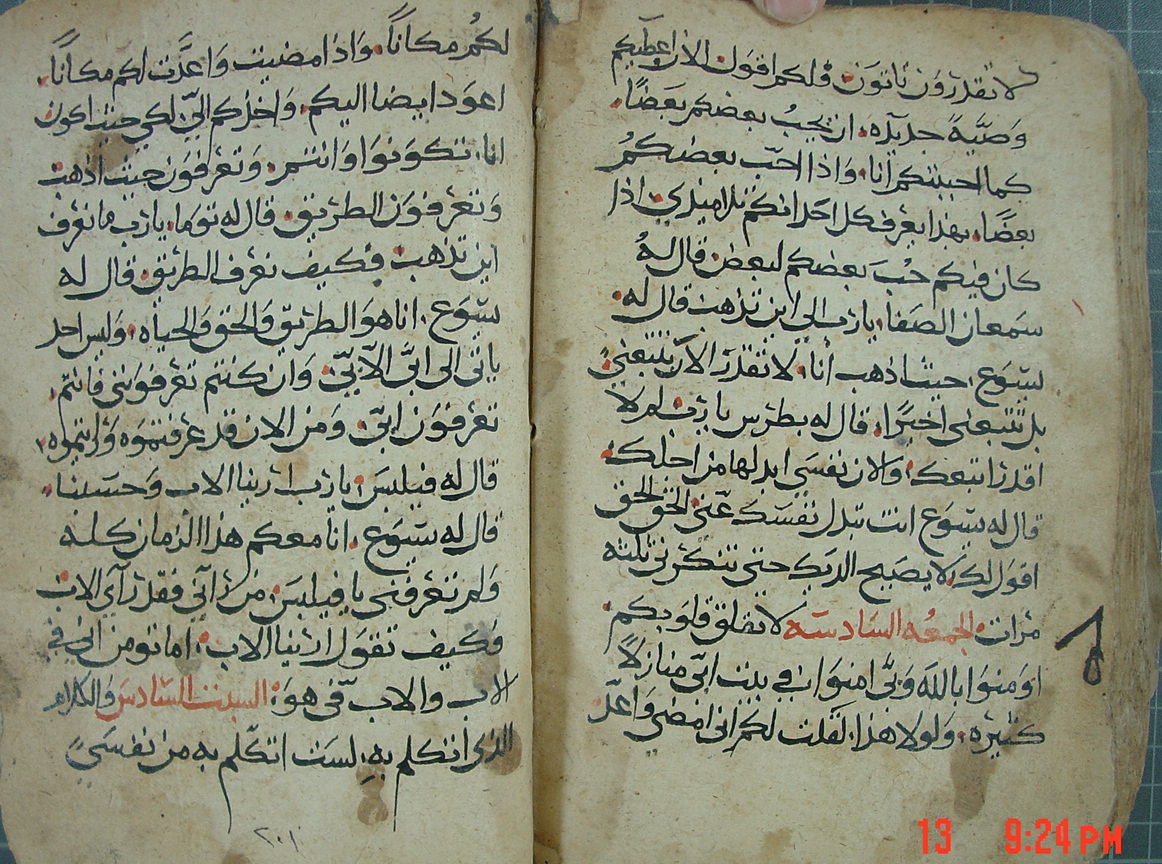 لا تقدرون تاتون. ولكم اقول الان اعطيكم
وصيّة جديده، ان يحب بعضكم بعضًا.
كما احببتكم انا. واذا احب بعضكم
بعضًا، بهذا يعرف كل احد انكم تلاميذي اذا
كان فيكم حب بعضكم لبعض قال له
سمعان الصفا، يارب الى اين تذهب قال له.
يسوع، حيث اذهب انا، لا تقدر الان تتبعني.
بل تتبعني اخيرًا، قال له بطرس يارب لم لا
اقدر اتبعك والان نفسي ابدلها من اجلك.
قال له يسوع انت تبدل نفسك عني الحق الحق
اقول لك لا يصيح الديك حتى تنكرني ثلثه
مرات. الجمعه السادسه لا تقلق قلوبكم.
اومنوا بالله وبي امنوا ان في بيت ابي منازلًا
كثيره، ولولا هذا لقلت لكم اني امضي واعد
لكم مكانًا. واذا مضيت واعدت لكم مكانًا.
اعود ايضا اليكم. واخذكم اليّ لكي حيث اكون
انا. تكونوا وانتم. وتعرفون حيث اذهب
وتعرفون الطريق. قال له توما، يارب ما نعرف
اين تذهب فكيف نعرف الطريق. قال له
يسوع. انا هو الطريق والحق والحياه. وليس احد
ياتي الى ابي الا بي. وان كنتم تعرفونني فانتم.
تعرفون ابي. ومن الان قد عرفتموه ورايتموه.
قال له فيلبس يارب ارينا الاب وحسبنا.
قال له يسوع. انا معكم هذا الزمان كله
ولم تعرفني يا فيلبس. من راني فقد راى الاب
وكيف تقول ارينا الاب. اما تومن اني في
الاب والاب فيّ هو. السبت السادس والكلام
الذي اتكلم به. لست اتكلم به من نفسي
٢٠١
13 9:24 PM